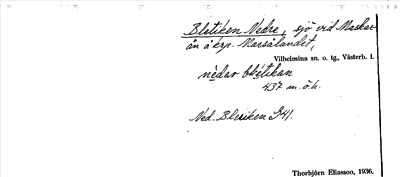 Bletiken Nedre, sjö vid Maskar-
ån å krp. Marsålandet,
Vilhelmina sn. o. tg., Västerb. l.
nèdar blétikan
437 m. ö. h.
Ned. Bleriken GK.
Thorbjörn Eliasson, 1936.